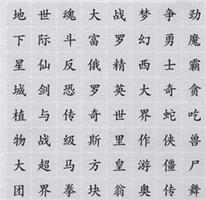 地世魂大战梦争劲
下际斗富罗幻勇魔
星仙反俄精西士霸
城剑恐罗英大奇贪
植与传奇世界蛇吃
物战级斯里作侠兽
大超马方皇游僵尸
团界拳块翁奥传舞